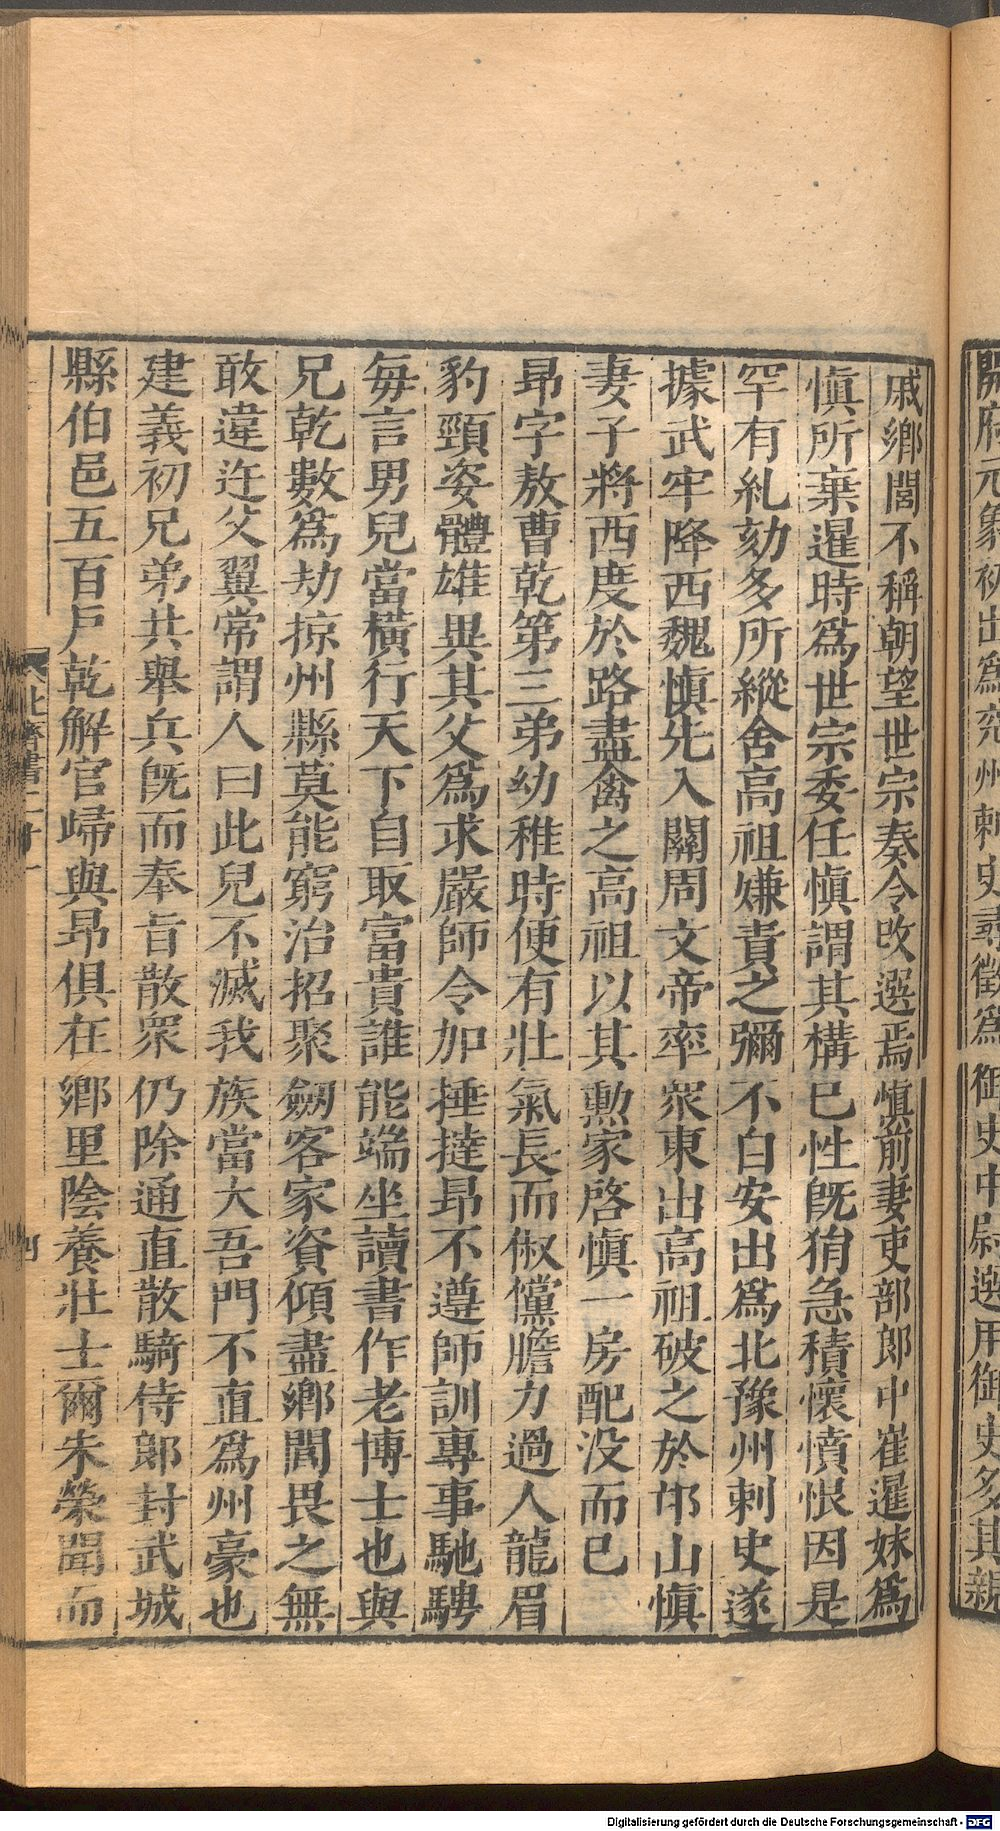 開府元象初出爲兖州刺史尋徵爲御史中尉選用御史多其親
戚鄉閭不稱朝望世宗奏令改選焉慎前妻吏部郎中崔暹妹爲
慎所棄暹時爲世宗委任慎謂其構已性旣狷急積懷憤恨因是
罕有糺劾多所縱舍高祖嫌責之彌不自安出爲北豫州刺史遂
據武牢降西魏慎先入關周文帝率衆東出高祖破之於邙山慎
妻子將西度於路盡禽之高祖以其勲家啓慎一房配没而已
昂字敖曹乾第三弟幼稚時便有壯氣長而俶儻膽力過人龍眉
豹頸姿體雄異其父爲求嚴師令加捶撻昂不遵師訓專事馳騁
每言男兒當橫行天下自取富貴誰能端坐讀書作老博士也與
兄乾數爲劫掠州縣莫能窮治招聚劒客家資傾盡鄉閭畏之無
敢違迕父翼常謂人曰此兒不滅我族當大吾門不直爲州豪也
建義初兄弟共舉兵旣而奉旨散衆仍除通直散騎侍郎封武城
縣伯邑五百戶乾解官歸與昂俱在鄉里陰養壯士爾朱榮聞而
北齊書二十一
四
Digitalisierung gefördert durch die Deutsche Forschungsgemeinschaft - DFG